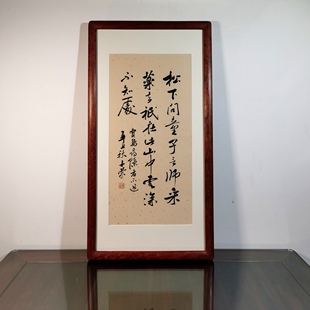 松下問童子言師采
藥去祇在此山中雲深
不知處
賈島尋隱者不遇
辛丑秋